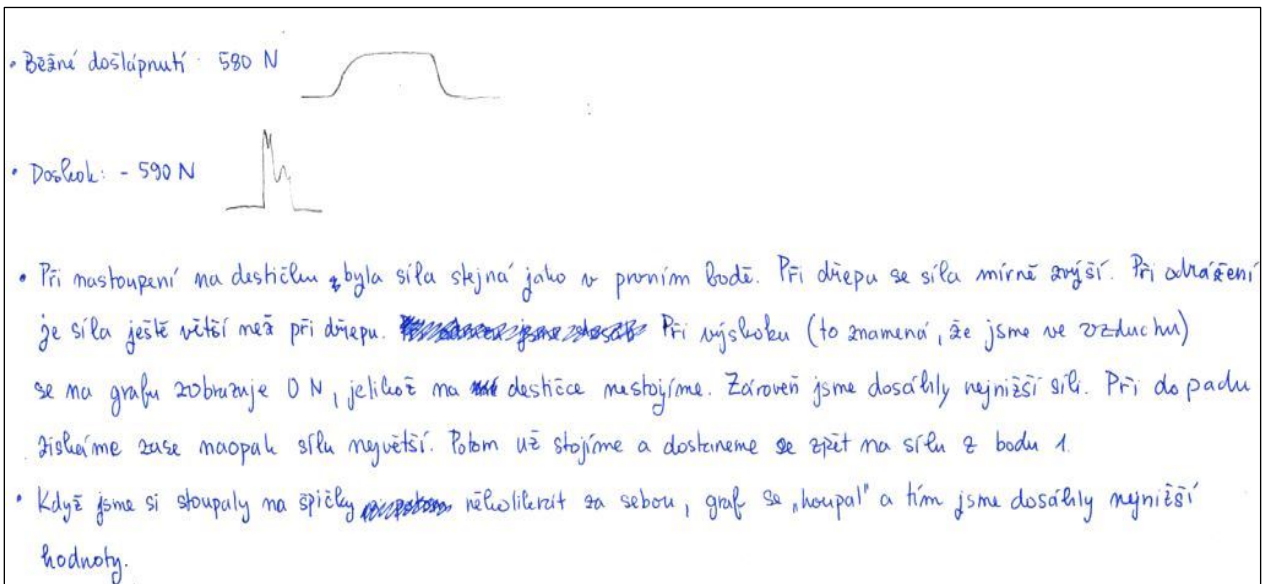 • Běžné došlápnutí: 580 N
• Doskok: - 590 N
• Při nastoupení na destičku byla síla stejná jako v prvním bodě. Při dřepu se síla mírně zvýší. Při odrážení
je síla ještě větší než při dřepu. Při výskoku (to znamená, že jsme ve vzduchu)
se na grafu zobrazuje 0 N, jelikož na destičce nestojíme. Zároveň jsme dosáhly nejnižší síli. Při dopadu
získáme zase naopak sílu největší. Potom už stojíme a dostaneme se zpět na sílu z bodu 1.
• Když jsme si stoupaly na špičky několikrát za sebou, graf se „houpal" a tím jsme dosáhly nejnižší
hodnoty.